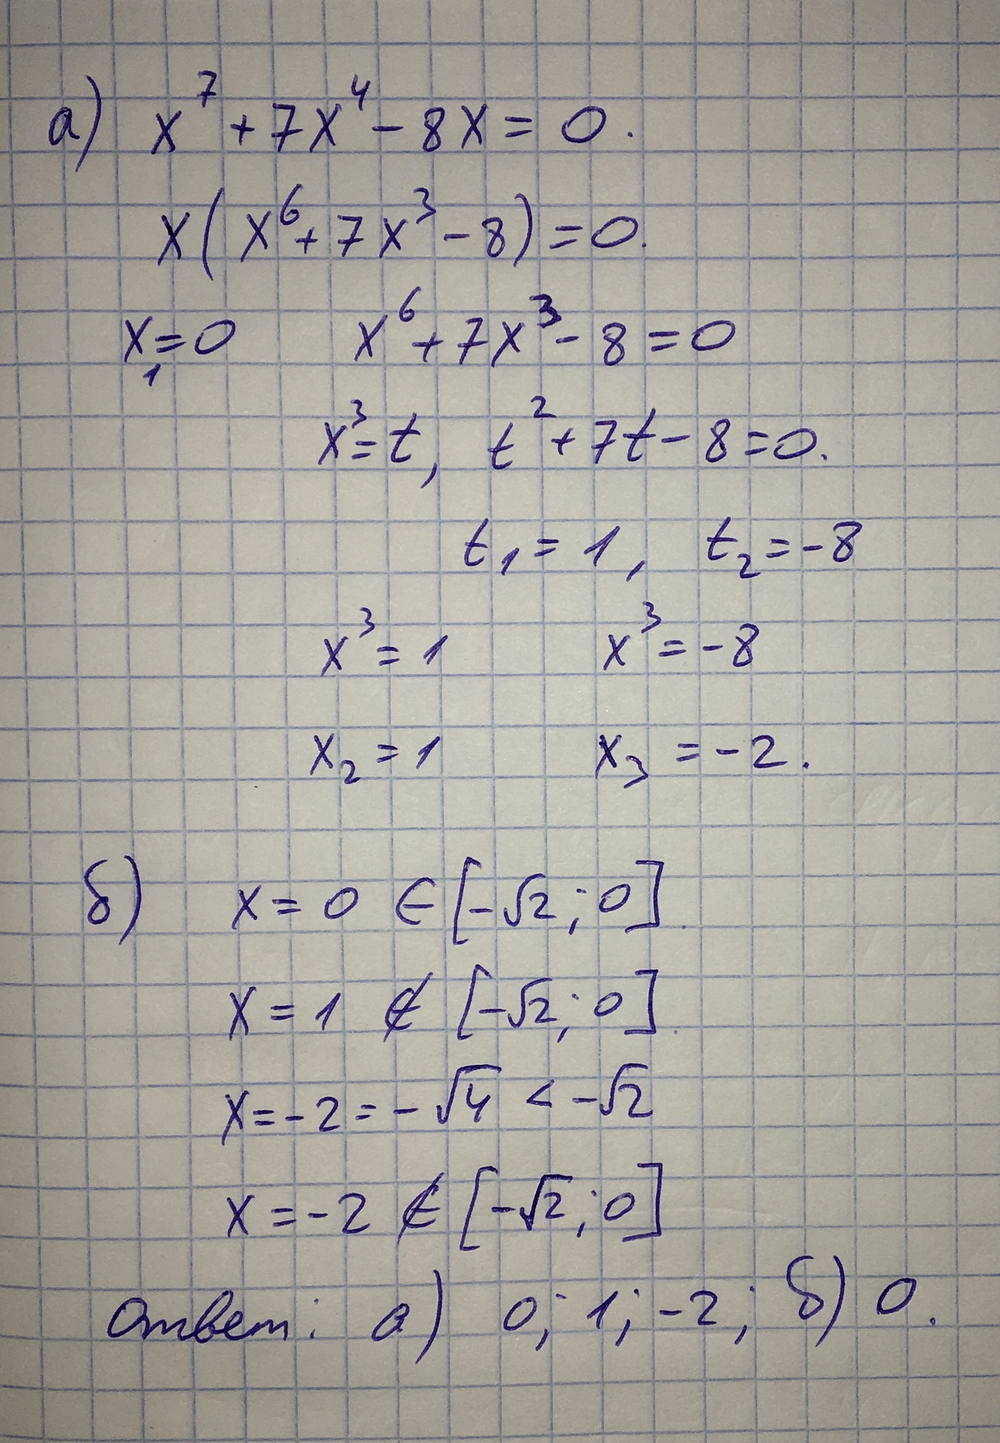 а) x⁷ + 7x⁴ - 8x = 0.
x(x⁶ + 7x³ - 8) = 0.
x₁ = 0 x⁶ + 7x³ - 8 = 0
x³ = t, t² + 7t - 8 = 0.
t₁ = 1, t₂ = -8
x³ = 1 x³ = -8
x₂ = 1 x₃ = -2.
б) x = 0 ∈ [-√2; 0].
x = 1 ∉ [-√2; 0].
x = -2 = -√4 < -√2
x = -2 ∉ [-√2; 0]
Ответ: а) 0; 1; -2; б) 0.